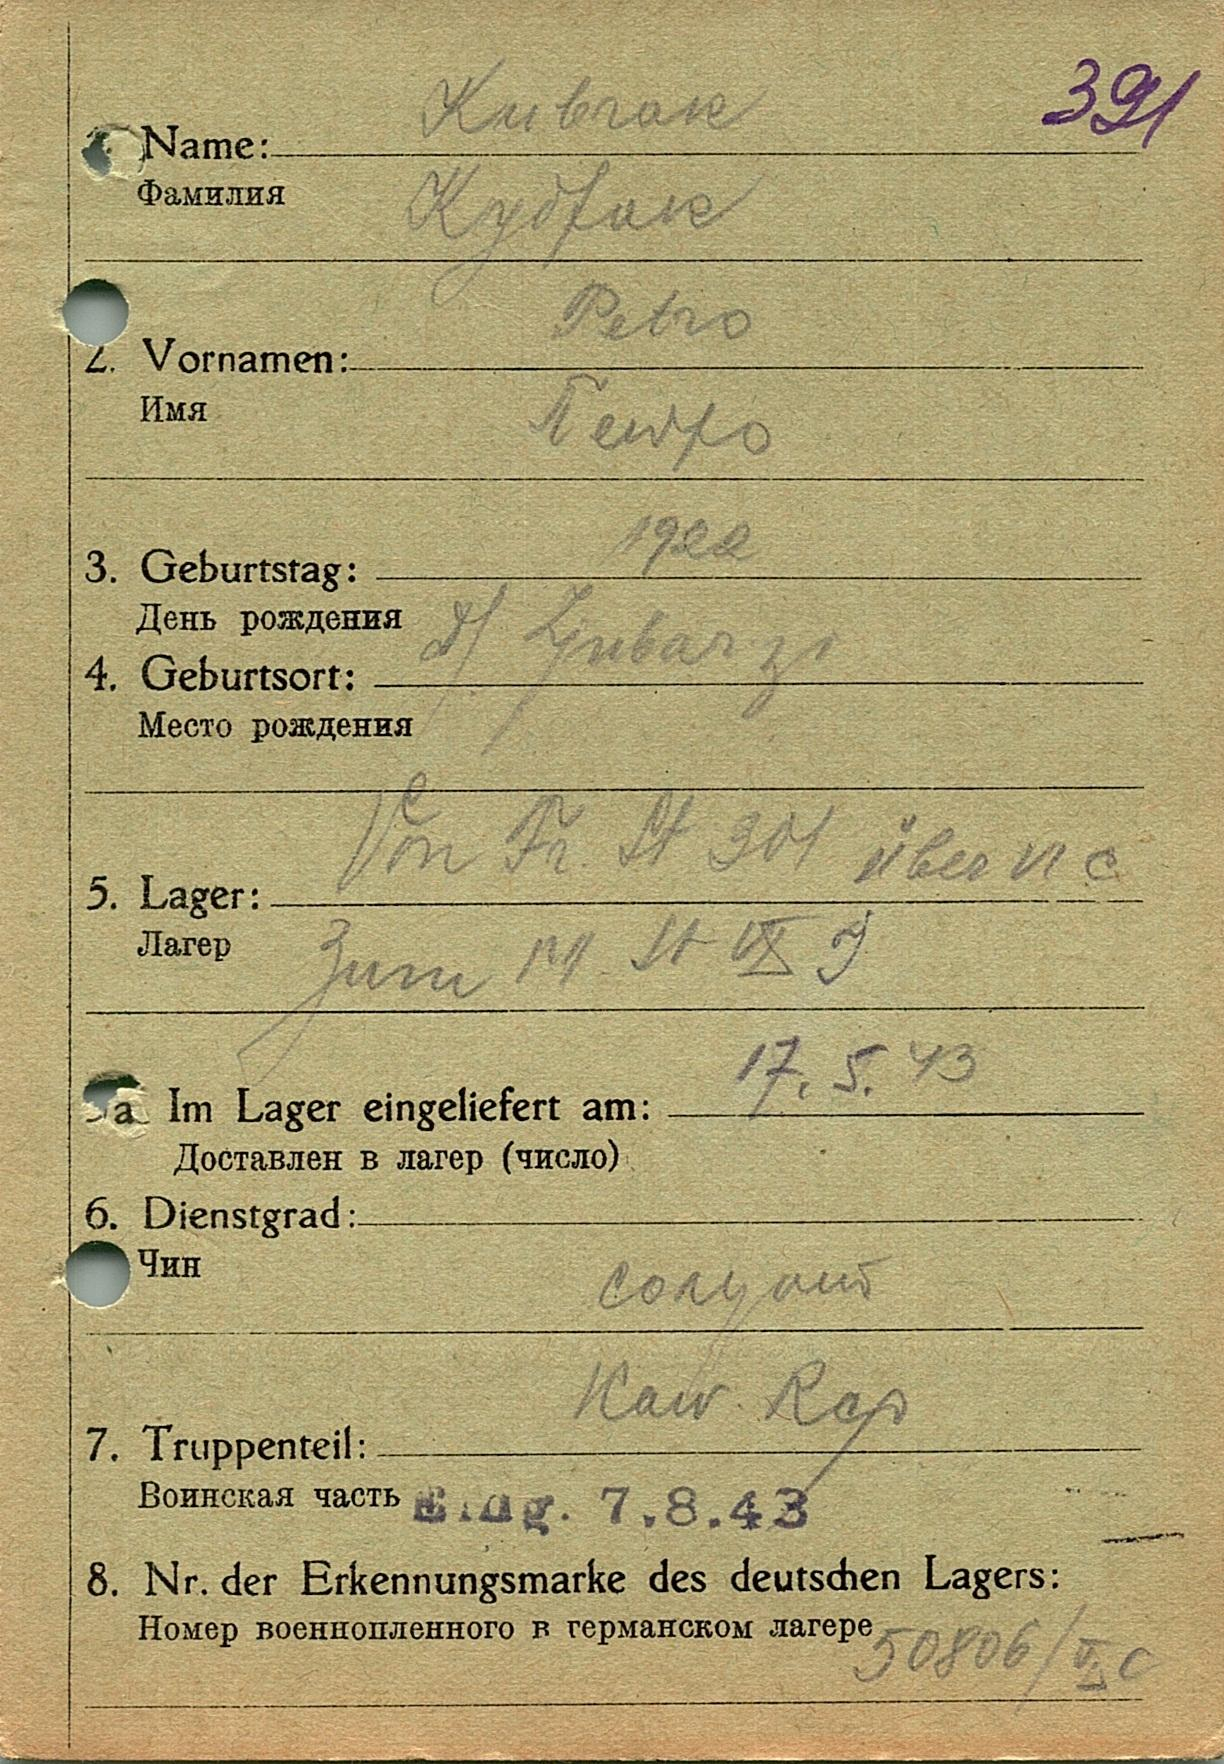 391
Kubrak
Name:
Фамилия
Кудрак
Petro
2. Vornamen:
Имя
Петро
1922
3. Geburtstag:
День рождения
D/ Ljubarzi
4. Geburtsort:
Место рождения
Von Fr. St 301 über VI C
5. Lager:
Лагер
Zum M. St VI J
17. 5. 43
5a Im Lager eingeliefert am:
Доставлен в лагер (число)
6. Dienstgrad:
Чин
солдат
Kaw. Rep
7. Truppenteil:
Воинская часть
Eing. 7.8.43
8. Nr. der Erkennungsmarke des deutschen Lagers:
Номер военнопленного в германском лагере
50806/VI C